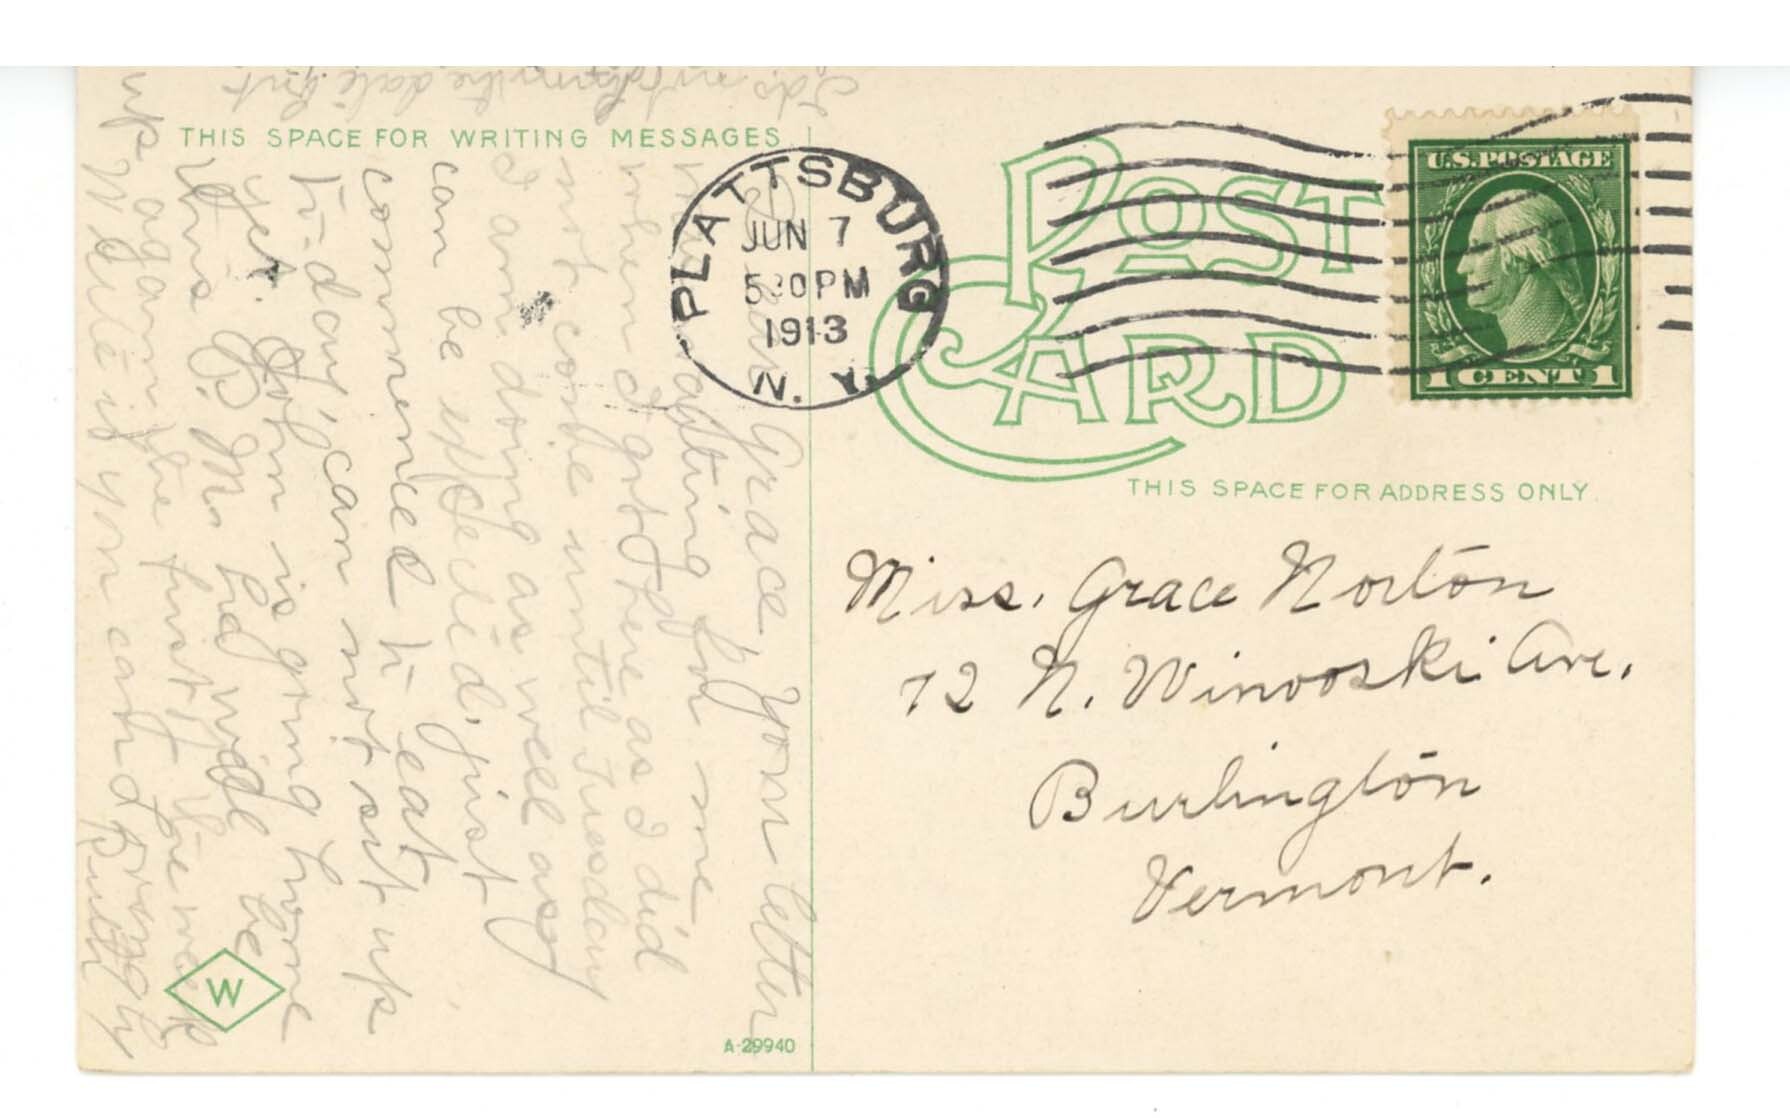 I do not know the date but
THIS SPACE FOR WRITING MESSAGES
Dear Grace, Your letter
was waiting for me
when I got here as I did
not come until Tuesday
I am doing as well as
can be expected, just
commenced to eat
to-day, can not sit up
yet. John is going home
this P. M. but will be
up again the first of the week
Write if you can
Lovingly
Ruth
PLATTSBURG
JUN 7
5 30 PM
1913
N. Y.
POST CARD
U.S. POSTAGE
1 CENT 1
THIS SPACE FOR ADDRESS ONLY.
Miss. Grace Norton
72 N. Winooski Ave.
Burlington
Vermont.
W
A-29940